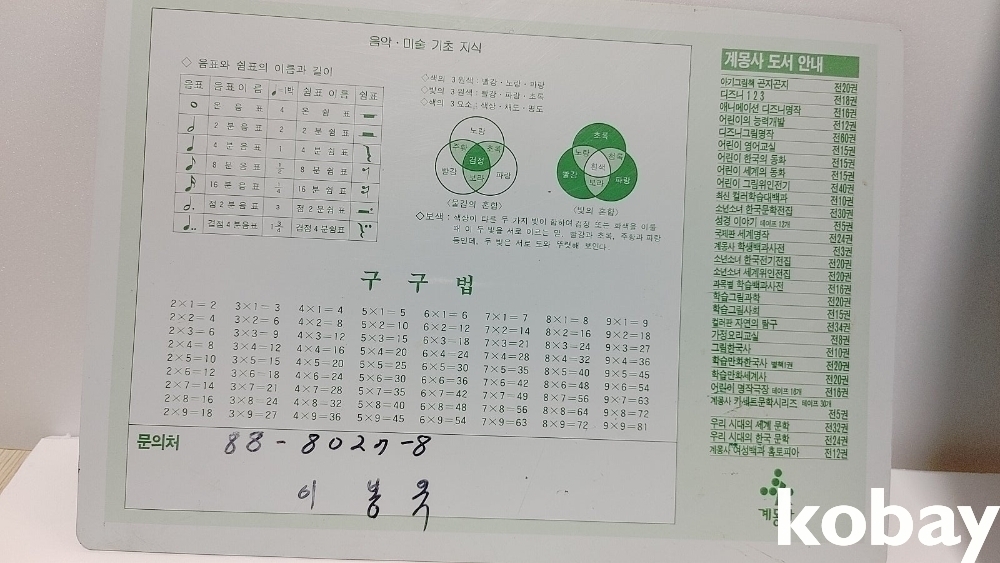 음악·미술 기초 지식
◇ 음표와 쉼표의 이름과 길이
음표 음표이름 ♩=1박 쉼표 이름 쉼표
온 음 표 4 온 쉼 표
2 분 음 표 2 2 분 쉼 표
4 분 음 표 1 4 분 쉼 표
8 분 음 표 1/2 8 분 쉼 표
16 분 음 표 1/4 16 분 쉼 표
점 2 분 음 표 3 점 2 분 쉼 표
겹점 4 분음표 1 3/4 겹점 4 분쉼표
◇색의 3원색 : 빨강·노랑·파랑
◇빛의 3원색 : 빨강·파랑·초록
◇색의 3요소 : 색상·채도·명도
노랑
주황 초록
검정
빨강 보라 파랑
〈물감의 혼합〉
초록
노랑 청록
흰색
빨강 보라 파랑
〈빛의 혼합〉
◇보색 : 색상이 다른 두 가지 빛이 합하여 검정 또는 회색을 이룰
때 이 두 빛을 서로 이르는 말. 빨강과 초록, 주황과 파랑
등인데, 두 빛은 서로 도와 뚜렷해 보인다.
구 구 법
2×1= 2 3×1= 3 4×1= 4 5×1= 5 6×1= 6 7×1= 7 8×1= 8 9×1= 9
2×2= 4 3×2= 6 4×2= 8 5×2=10 6×2=12 7×2=14 8×2=16 9×2=18
2×3= 6 3×3= 9 4×3=12 5×3=15 6×3=18 7×3=21 8×3=24 9×3=27
2×4= 8 3×4=12 4×4=16 5×4=20 6×4=24 7×4=28 8×4=32 9×4=36
2×5=10 3×5=15 4×5=20 5×5=25 6×5=30 7×5=35 8×5=40 9×5=45
2×6=12 3×6=18 4×6=24 5×6=30 6×6=36 7×6=42 8×6=48 9×6=54
2×7=14 3×7=21 4×7=28 5×7=35 6×7=42 7×7=49 8×7=56 9×7=63
2×8=16 3×8=24 4×8=32 5×8=40 6×8=48 7×8=56 8×8=64 9×8=72
2×9=18 3×9=27 4×9=36 5×9=45 6×9=54 7×9=63 8×9=72 9×9=81
문의처 88-8027-8
이 봉 욱
계몽사 도서 안내
아기그림책 곤지곤지 전20권
디즈니 1 2 3 전18권
애니메이션 디즈니명작 전16권
어린이의 능력개발 전12권
디즈니그림명작 전60권
어린이 영어교실 전15권
어린이 한국의 동화 전15권
어린이 세계의 동화 전15권
어린이 그림위인전기 전40권
최신 컬러학습대백과 전10권
소년소녀 한국문학전집 전30권
성경 이야기 테이프 12개 전5권
국제판 세계명작 전24권
계몽사 학생백과사전 전3권
소년소녀 한국전기전집 전20권
소년소녀 세계위인전집 전20권
과목별 학습백과사전 전16권
학습그림과학 전20권
학습그림사회 전15권
컬러판 자연의 탐구 전34권
가정요리교실 전8권
그림한국사 전10권
학습만화한국사 별책1권 전20권
학습만화세계사 전20권
어린이 명작극장 테이프 16개 전16권
계몽사 카세트문학시리즈 테이프 30개
전5권
우리 시대의 세계 문학 전32권
우리 시대의 한국 문학 전24권
계몽사 여성백과 홈토피아 전12권
계몽
kobay